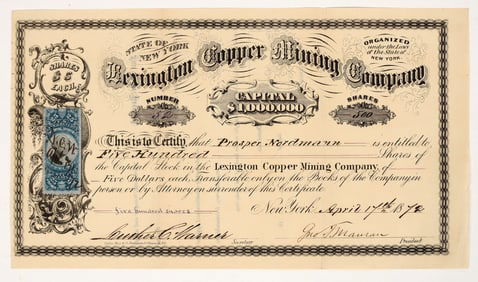 STATE OF
NEW YORK
ORGANIZED
under the Laws
of the State of
NEW YORK.
Lexington Copper Mining Company
SHARES
$5
EACH
NUMBER
CAPITAL
$1,000,000
SHARES
500
This is to Certify, that Prosper Nordmann is entitled to
Five Hundred Shares of
the Capital Stock in the Lexington Copper Mining Company, of
Five Dollars each, Transferable only on the Books of the Company in
person or by Attorney on surrender of this Certificate
Five hundred shares
New York April 17th 187
Luther C. Warner
Secretary
President